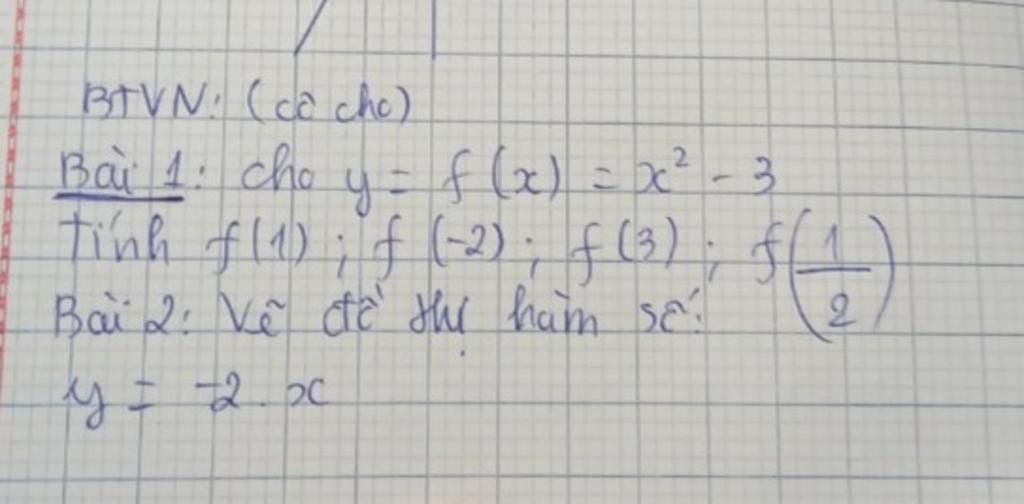 BTVN: (cô cho)
Bài 1: cho y = f(x) = x² - 3
Tính f(1); f(-2); f(3); f(1/2)
Bài 2: Vẽ đồ thị hàm số:
y = -2.x